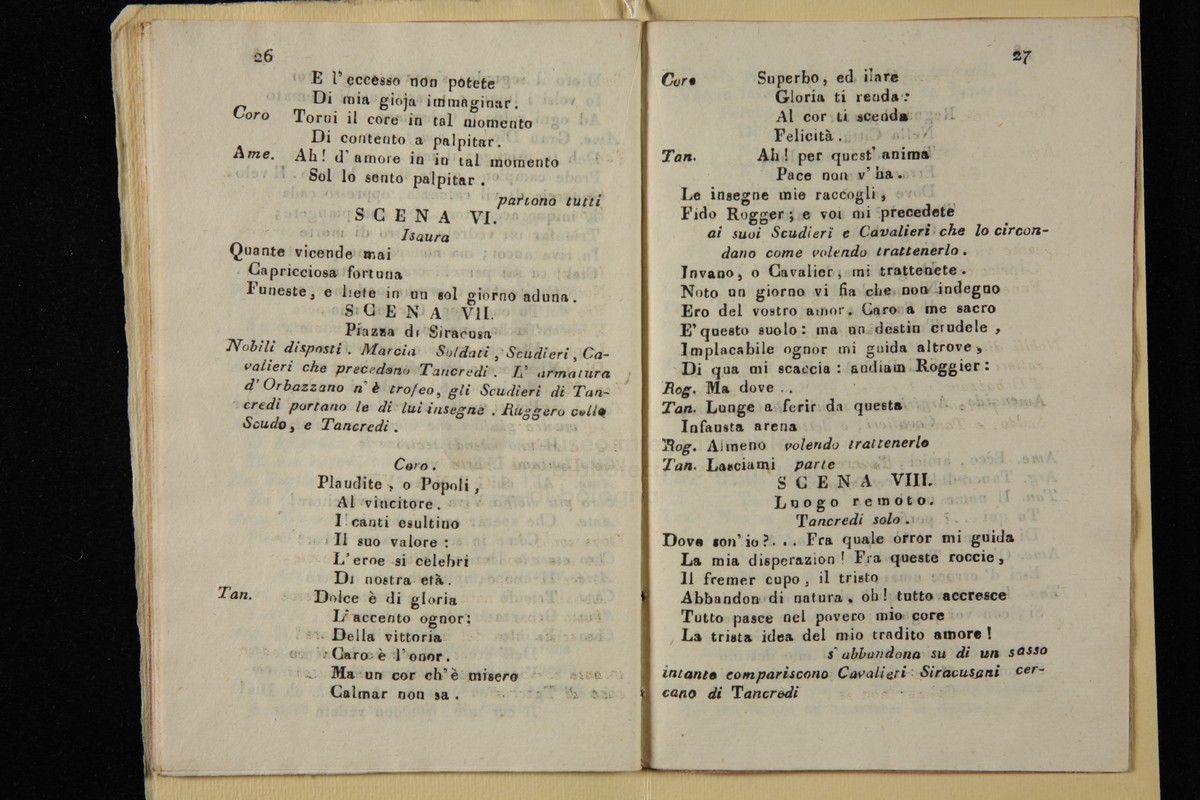 26
E l'eccesso non potete
Di mia gioja immaginar.
Coro Torni il core in tal momento
Di contento a palpitar.
Ame. Ah! d'amore in in tal momento
Sol lo sento palpitar.
partono tutti
SCENA VI.
Isaura
Quante vicende mai
Capricciosa fortuna
Funeste, e liete in un sol giorno aduna.
SCENA VII.
Piazza di Siracusa
Nobili disposti. Marcia Soldati, Scudieri, Ca-
valieri che precedono Tancredi. L'armatura
d'Orbazzano n'è trofeo, gli Scudieri di Tan-
credi portano le di lui insegne. Ruggero collo
Scudo, e Tancredi.
Coro.
Plaudite, o Popoli,
Al vincitore.
I canti esultino
Il suo valore:
L'eroe si celebri
Di nostra età.
Tan. Dolce è di gloria
L'accento ognor:
Della vittoria
Caro è l'onor.
Ma un cor ch'è misero
Calmar non sa.
27
Coro Superbo, ed ilare
Gloria ti renda:
Al cor ti scenda
Felicità.
Tan. Ah! per quest'anima
Pace non v'ha.
Le insegne mie raccogli,
Fido Rogger; e voi mi precedete
ai suoi Scudieri e Cavalieri che lo circon-
dano come volendo trattenerlo.
Invano, o Cavalier, mi trattenete.
Noto un giorno vi fia che non indegno
Ero del vostro amor. Caro a me sacro
E' questo suolo: ma un destin crudele,
Implacabile ognor mi guida altrove,
Di qua mi scaccia: andiam Roggier:
Rog. Ma dove ..
Tan. Lunge a ferir da questa
Infausta arena
Rog. Almeno volendo trattenerlo
Tan. Lasciami parte
SCENA VIII.
Luogo remoto.
Tancredi solo.
Dove son'io?... Fra quale orror mi guida
La mia disperazion! Fra queste roccie,
Il fremer cupo, il tristo
Abbandon di natura, oh! tutto accresce
Tutto pasce nel povero mio core
La trista idea del mio tradito amore!
s'abbandona su di un sasso
intanto compariscono Cavalieri Siracusani cer-
cano di Tancredi